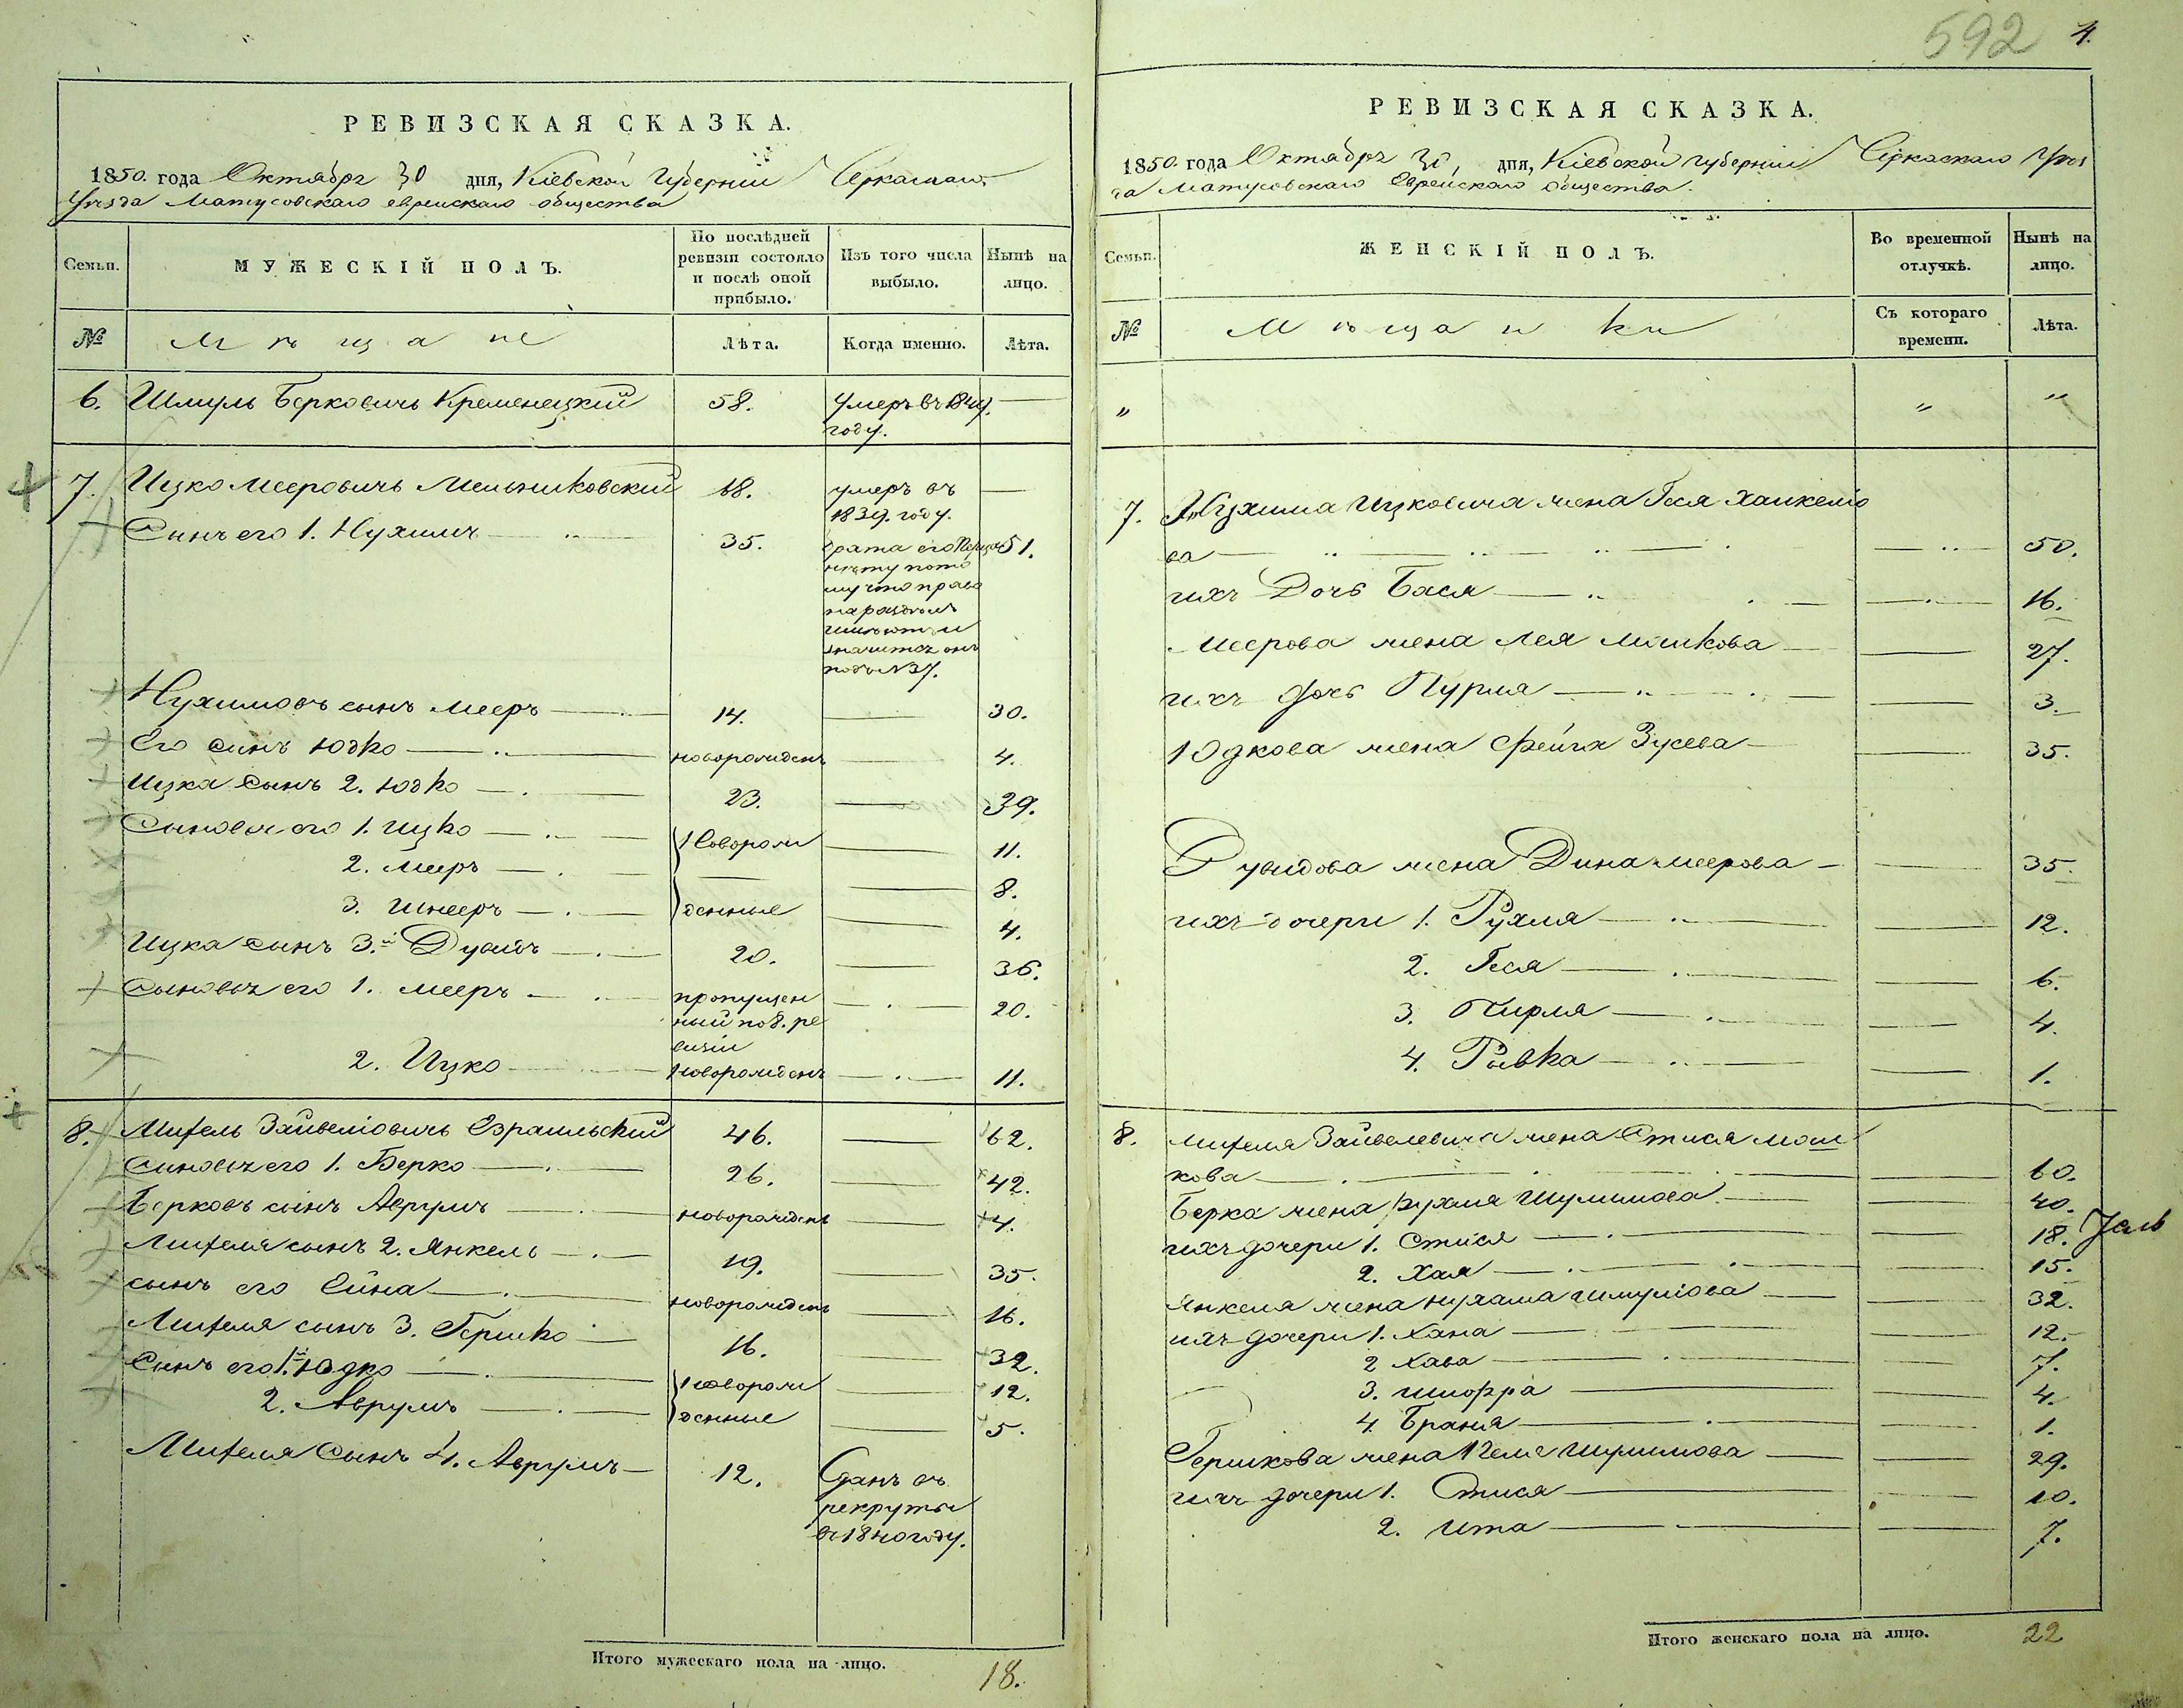 592 4.
РЕВИЗСКАЯ СКАЗКА.
1850. года Октября 30 дня, Кіевской Губерніи Черкаскаго
Уѣзда Матусовскаго еврейскаго общества
Семьи.
МУЖЕСКІЙ ПОЛЪ.
По послѣдней ревизіи состояло и послѣ оной прибыло.
Изъ того числа выбыло.
Нынѣ на лицо.
№ Мѣщане Лѣта. Когда именно. Лѣта.
6. Шмуль Берковичь Кременецкій 58. умеръ въ 1844. —
году.
7. Ицко Мееровичь Мельниковскій 68. умеръ въ —
1839. году.
Сынъ его 1. Нухимъ — 35. брата его 51.
нѣту пото
му что права
на раздѣлъ
имѣютъ и
значится онъ
подъ № 37.
Нухимовъ сынъ Мееръ — 14. — 30.
Его сынъ Юдко — новорожденъ — 4.
Ицка сынъ 2. Юдко — 23. — 39.
Сыновья его 1. Ицко — новорож — 11.
2. Мееръ — — 8.
3. Шнееръ — денные — 4.
Ицка сынъ 3.й Дувидъ — 20. — 36.
Сыновья его 1. Мееръ — пропущен — 20.
ный по 8. ре
визіи
2. Ицко — новорожденъ — 11.
8. Митель Зайвеліовичь Езраильскій 46. — 62.
Сыновья его 1. Берко — 26. — 42.
Берковъ сынъ Аврумъ — новорожденъ — 4.
Мителя сынъ 2. Янкель — 19. — 35.
сынъ его Сина — новорожденъ — 16.
Мителя сынъ 3. Гершко — 16. — 32.
Сынъ его 1.й Юдко — новорож — 12.
2. Аврумъ — денные — 5.
Мителя сынъ 4. Аврумъ — 12. Сданъ въ
рекруты
въ 1840 году.
Итого мужескаго пола на лицо. 18.
РЕВИЗСКАЯ СКАЗКА.
1850. года Октября 30, дня, Кіевской губерніи Черкаскаго Уѣз
да Матусовскаго Еврейскаго общества.
Семьи.
ЖЕНСКІЙ ПОЛЪ.
Во временной отлучкѣ.
Нынѣ на лицо.
№ Мѣщанки Съ котораго времени. Лѣта.
" " "
7. Нухима Ицковича жена Геся Ханкеліо
ва — — 50.
ихъ Дочь Бася — — 16.
Меерова жена Лея Мошкова — — 27.
ихъ дочь Пурля — — 3.
Юдкова жена Фейга Зусева — — 35.
Дувидова жена Дина Меерова — — 35.
ихъ дочери 1. Рухля — — 12.
2. Геся — — 6.
3. Пирля — — 4.
4. Ривка — — 1.
8. Мителя Зайвелевича жена Стися Мош
кова — — 60.
Берка жена Рухля Шулимова — — 40.
ихъ дочери 1. Стися — — 18.
2. Хая — — 15.
Янкеля жена Нухама Шмуліова — — 32.
ихъ дочери 1. Хана — — 12.
2 Хава — — 7.
3. Шифра — — 4.
4. Браня — — 1.
Гершкова жена Шулимова — — 29.
ихъ дочери 1. Стися — — 10.
2. Ита — — 7.
Итого женскаго пола на лицо. 22